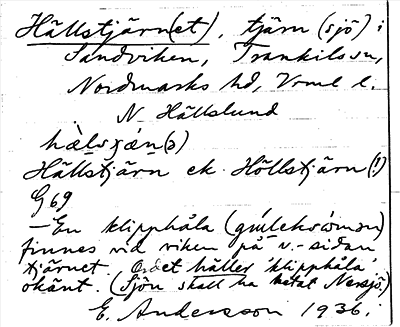 Hällstjärn(et), tjärn (sjö) i
Sandviken, Trankils sn,
Nordmarks hd, Vrml l.
N Hällslund
Hällstjärn ek. Höllstjärn (!)
G69
– En klipphåla
finnes vid viken på v.-sidan
tjärnet. Ordet häller 'klipphåla'
okänt. (Sjön skall ha hetat Norsjö.)
E. Andersson 1936.